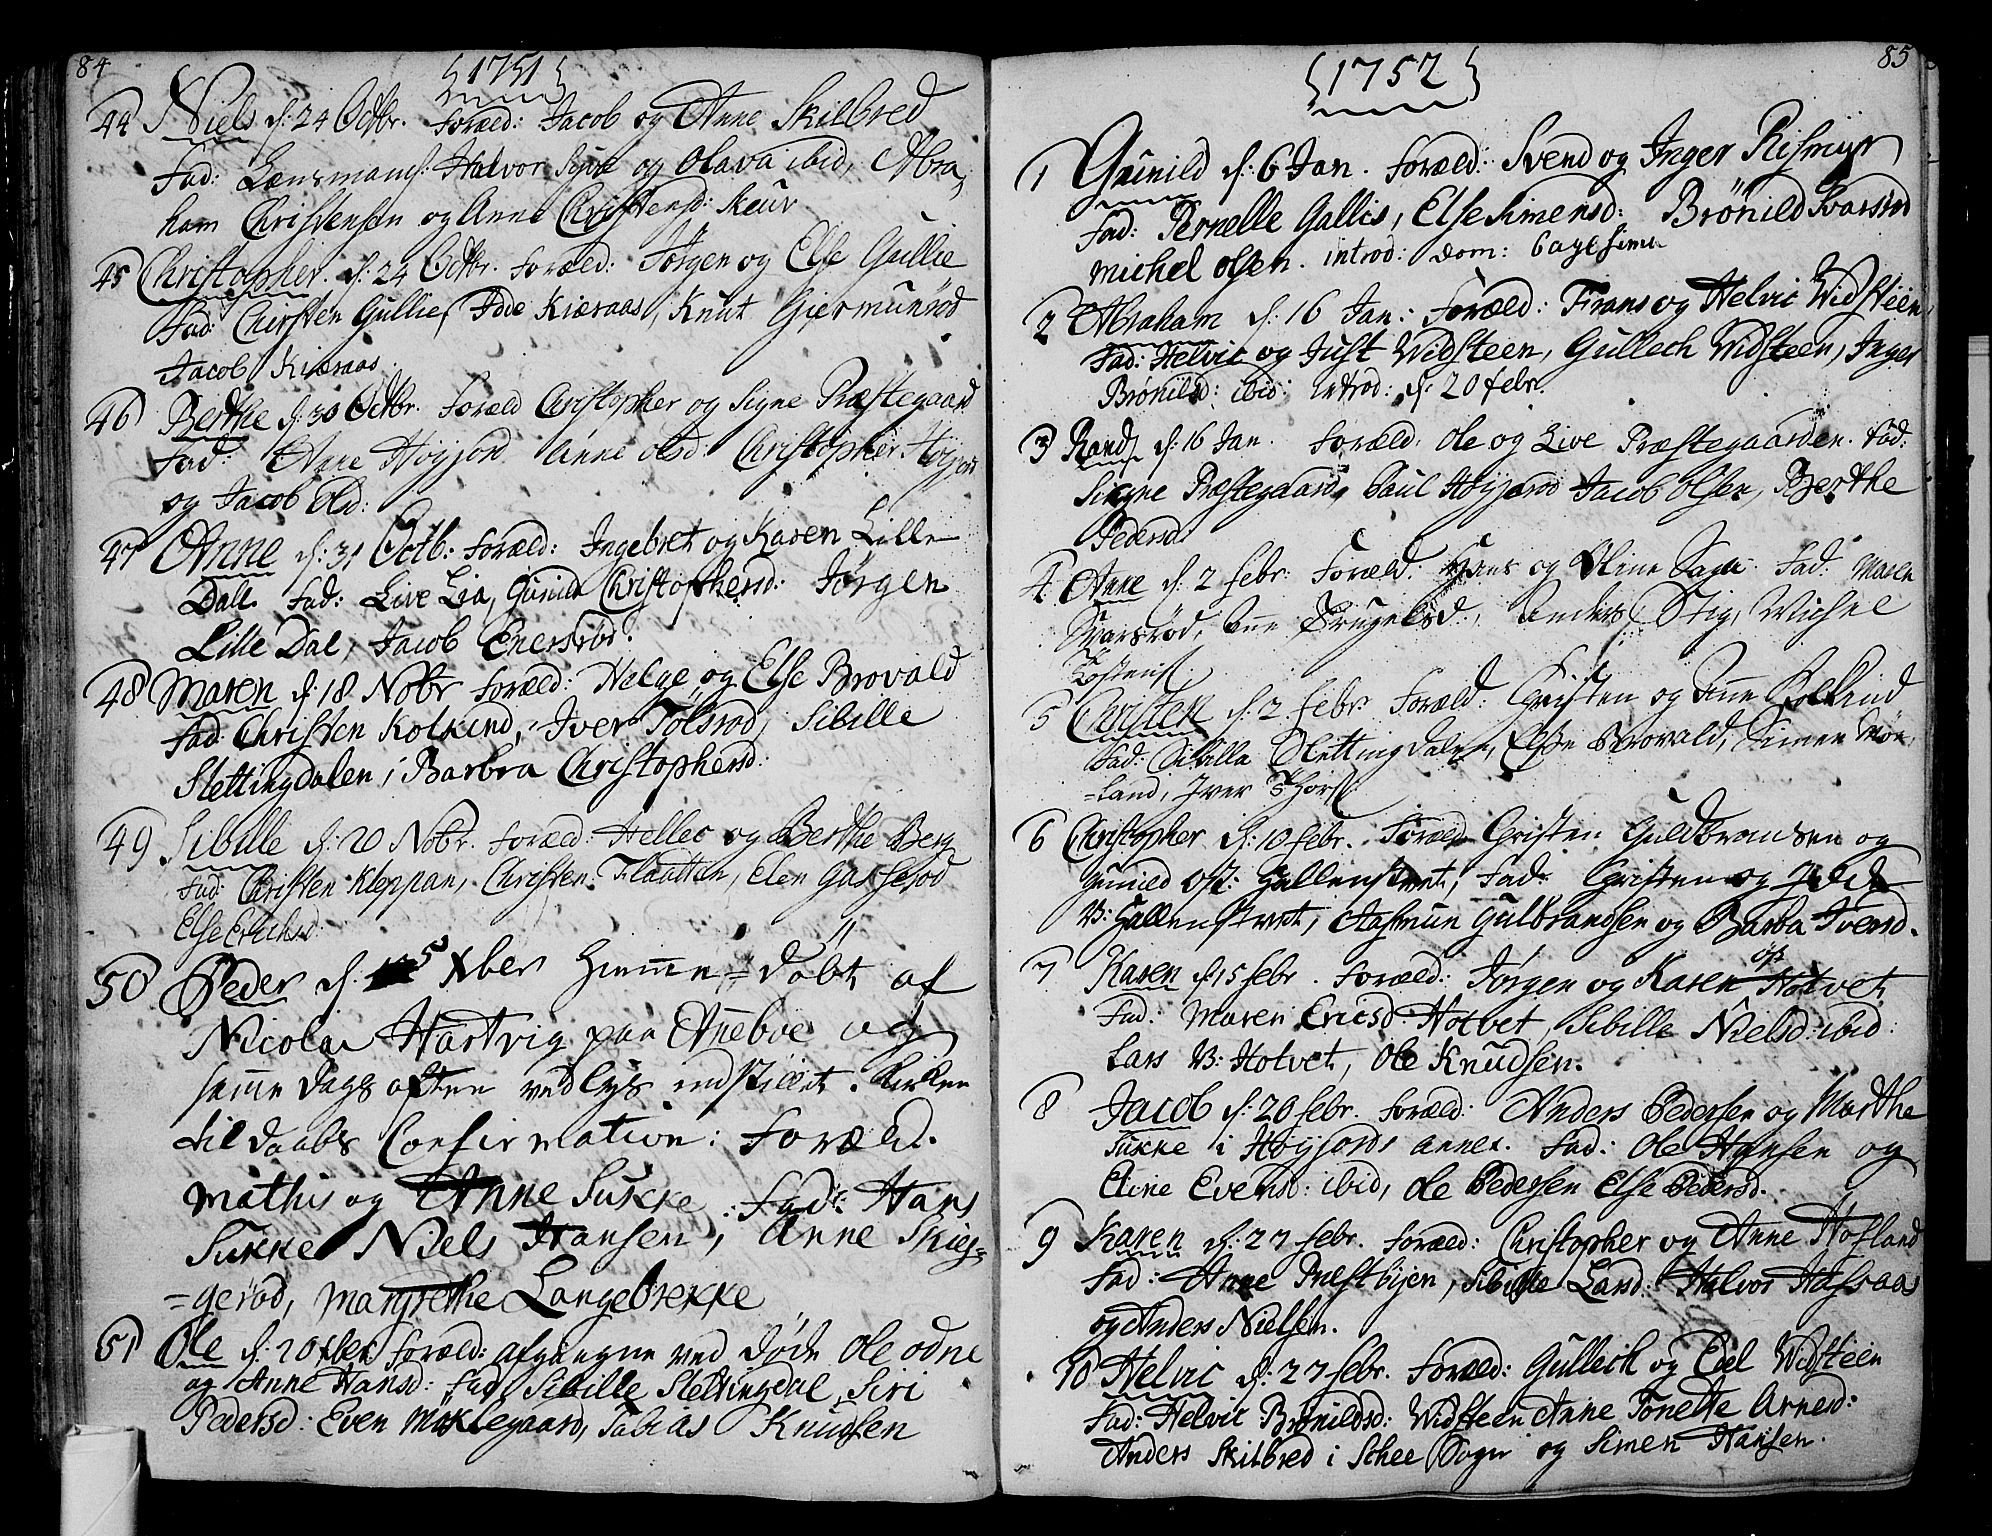 84
{1751}
44 Niels d: 24 Octbr. Foræld: Jacob og Anne Skilbred
Fad: Lænsmand: Halvor og Olava ibid, Abra-
ham Christensen og Anne Christensd: Skeur
45 Christopher. d: 24 Octbr. Foræld: Jørgen og Else Gullie
Fad: Christen Gullie, Kiæraas, Knut Giermunrød
Jacob Kiæraas.
46 Berthe d: 30 Octbr. Foræld Christopher og Signe Præstegaard
Fad: Anne Høyjord Anne olsd Christopher Høyjord
og Jacob Old:
47 Anne d: 31 Octb: Foræld: Ingebret og Karen Lille
Dal. Fad: Live Lia, Gunild Christophersd: Jørgen
Lille Dal, Jacob Enersrød.
48 Maren d: 18 Nobr Foræld: Helge og Else Brovald
Fad: Christen Kolkind, Iver Tolsrød, Sibille
Slettingdalen, Barbra Christophersd:
49 Sibille d: 20 Nobr. Foræld: Hellec og Berthe Berg
Fad: Christen Kleppan, Christen Flaatten, Elen Gaasserød
Else Ericksd:
50 Peder d. 5 Xber Hiemme-Døbt af
Nicolai Hartvig paa Anneboe og
samme Dags aften ved lys indstillet i Kirken
til Daabs Confirmation: Foræld.
Mathis og Anne Sukke. Fad: Hans
Sukke Niels Hansen, Anne Skieg-
=gerød, Margrethe Langebrekke
51 Ole d: 20 Xber Foræld: afgangne ved Døde Ole odne
og Anne Hansd: Fad Sibille Slettingdal, Siri
Pedersd: Even Møklegaard, Tobias Knudsen
85
{1752}
1 Gunild d: 6 Jan. Foræld: Svend og Inger Rismyr
Fad: Pernelle Gallis, Else Simensd: Brønild Svarsrød
Michel Olsen. introd: Dom:
2 Abraham d: 16 Jan: Foræld: Frans og Helvic Widsteen,
Fad: Helvic og Just Widsteen, Gullech Widsteen, Inger
Brønilsd: ibid: introd: d: 20 febr.
3 Randi d: 16 Jan. Foræld: Ole og Live Præstegaarden. Fad:
Signe Præstegaard, Paul Høyjord Jacob Olsen, Berthe
Pedersd:
4 Anne d: 2 febr: Foræld: Hans og Oline Fad: Maren
Svarsrød, Anne Trugelsd:, Anders Stig, Michel
5 Christen d: 2 febr Foræld: Christen og Anne Kolkind
Fad: Sibilla Slettingdalen, Else Brovald, Simen Møe-
=land, Iver Thors:
6 Christopher d: 10 febr. Foræld: Christen Guldbransen og
Gunild Øst: Hallenstvet, Fad: Christen og Idde
V: Hallenstvet, Aasmun Gulbrandsen og Barba Iversd.
7 Karen d: 15 febr. Foræld: Jørgen og Karen øst Hotvet
Fad: Maren Ericsd: Hotvet, Sibille Nielsd: ibid:
Lars V: Hotvet, Ole Knudsen.
8 Jacob d: 20 febr. Foræld: Anders Pedersen og Marthe
Sukke i Høyjords annex. Fad: Ole Hansen og
Eline Evensd: ibid, Ole Pedersen Else Pedersd.
9 Karen d: 27 febr. Foræld: Christopher og Anne Hofland
Fad: Anne Præstbyen, Sibille Larsd: Halvor Haasraas
og Anders Nielsen.
10 Helvic d: 27 febr. Foræld: Gullech og Edel Widsteen
Fad: Helvic Brønildsd: Widsteen Anne Tonette Arnesd:
Anders Skilbred i Schee Sogn og Simen Hansen.